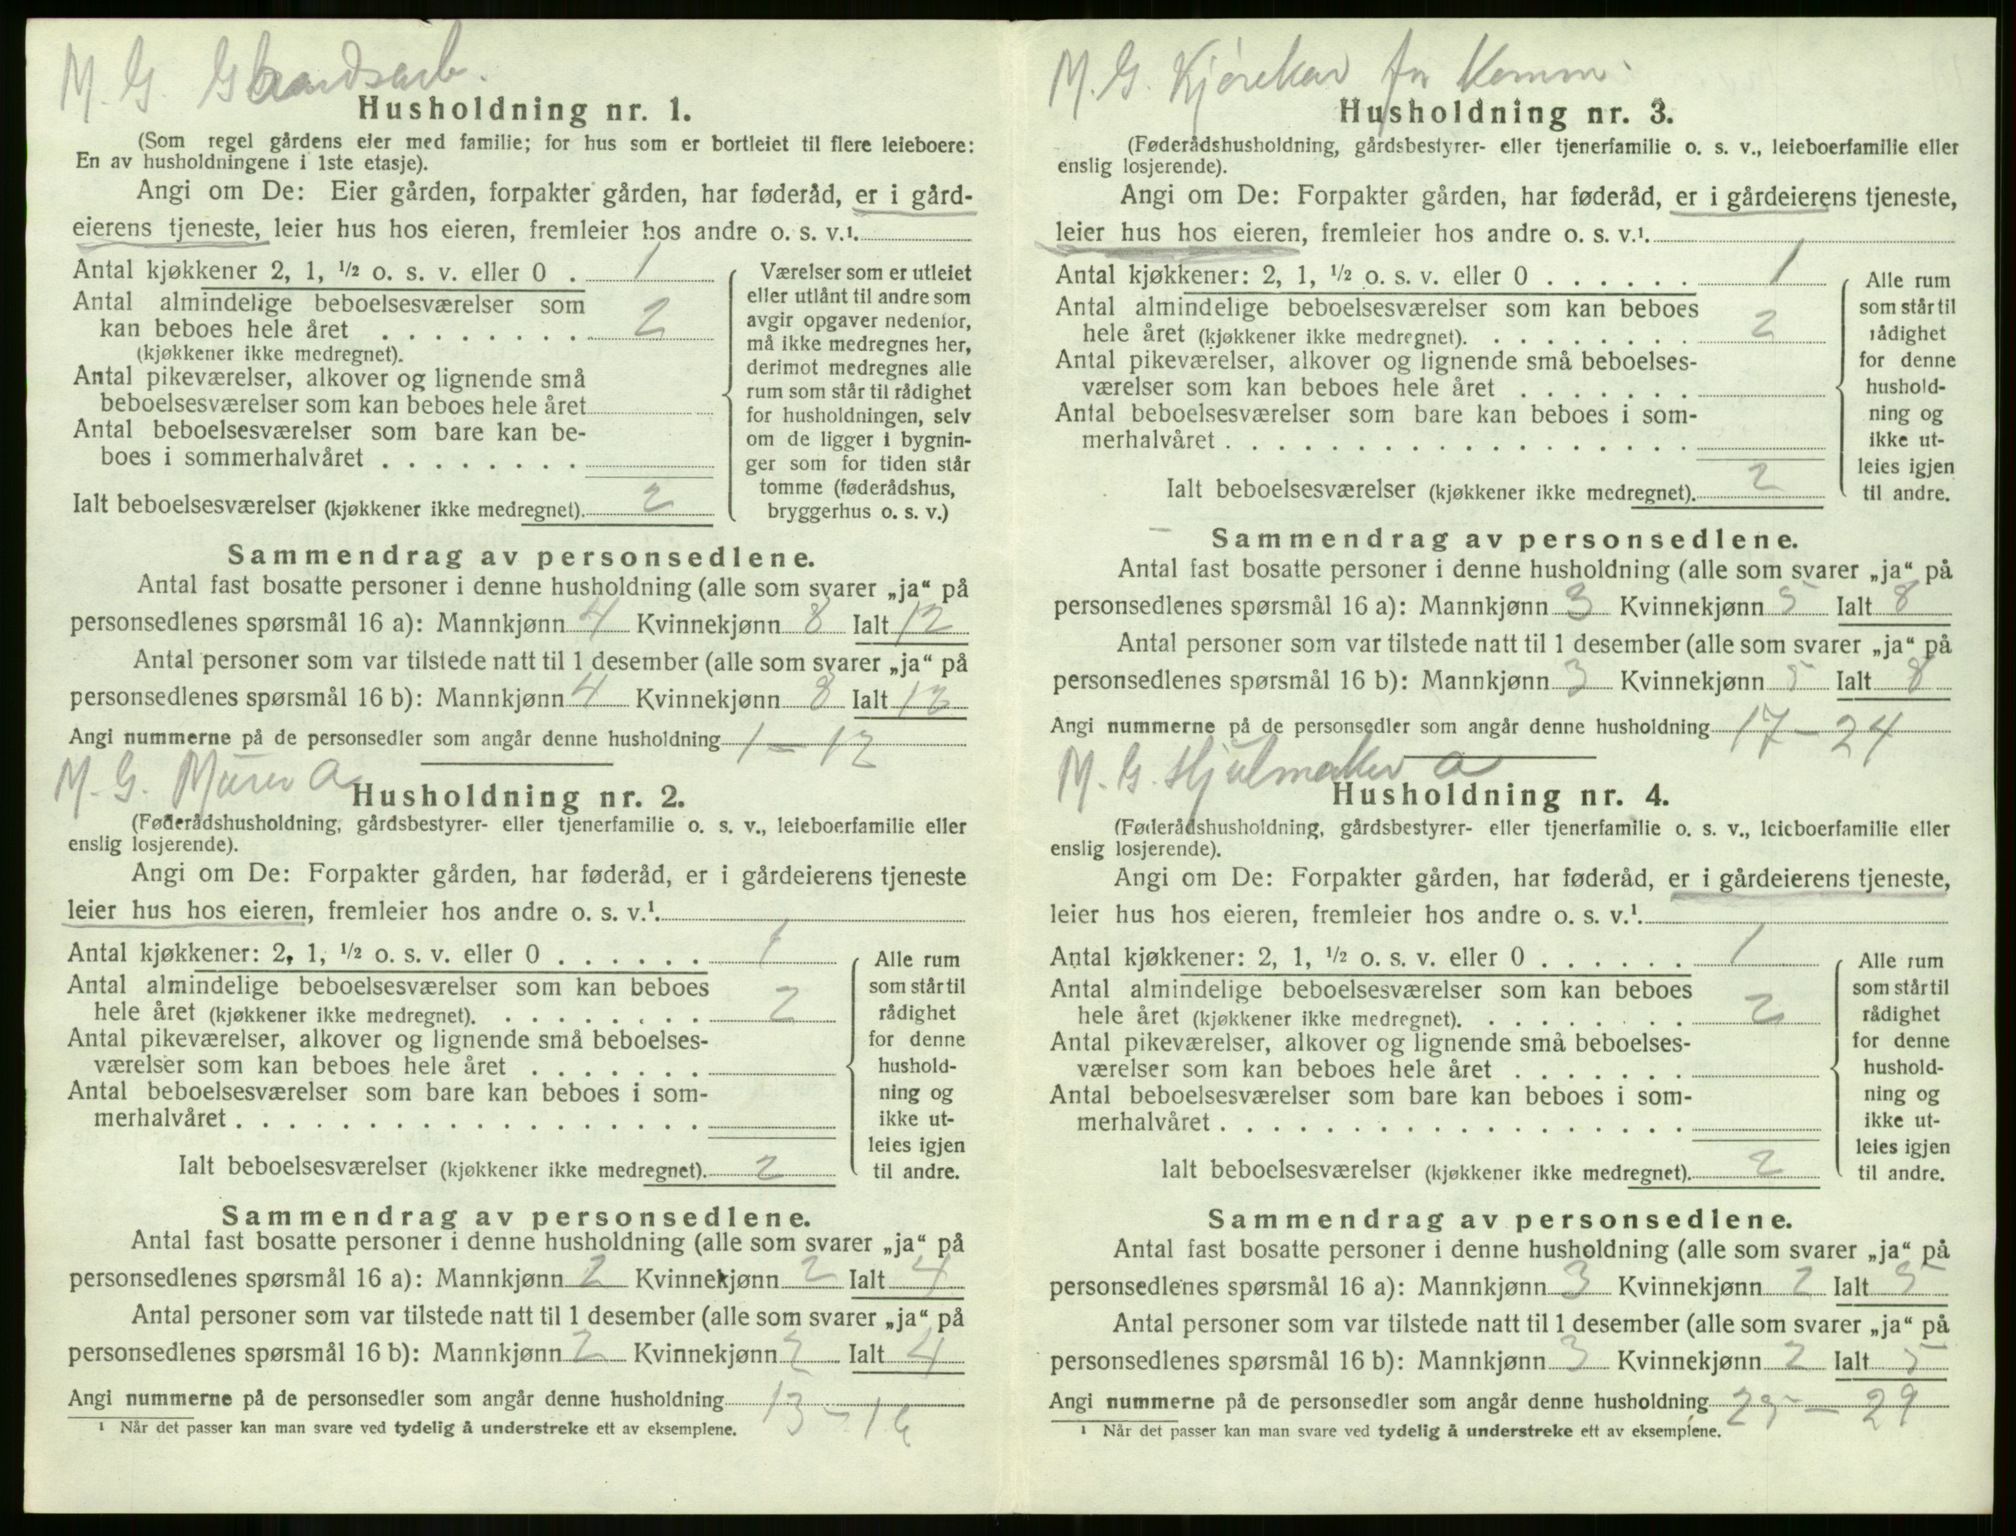 M. G. Gaardsarb.
Husholdning nr. 1.
(Som regel gårdens eier med familie; for hus som er bortleiet til flere leieboere:
En av husholdningene i 1ste etasje).
Angi om De: Eier gården, forpakter gården, har føderåd, er i gård-
eierens tjeneste, leier hus hos eieren, fremleier hos andre o. s. v.¹.
Antal kjøkkener 2, 1, ½ o. s. v. eller 0 . 1
Antal almindelige beboelsesværelser som
kan beboes hele året . . . . . . . . 2
(kjøkkener ikke medregnet).
Antal pikeværelser, alkover og lignende små
beboelsesværelser som kan beboes hele året
Antal beboelsesværelser som bare kan be-
boes i sommerhalvåret . . . . . . . .
Ialt beboelsesværelser (kjøkkener ikke medregnet). 2
Værelser som er utleiet
eller utlånt til andre som
avgir opgaver nedenfor,
må ikke medregnes her,
derimot medregnes alle
rum som står til rådighet
for husholdningen, selv
om de ligger i bygnin-
ger som for tiden står
tomme (føderådshus,
bryggerhus o. s. v.)
Sammendrag av personsedlene.
Antal fast bosatte personer i denne husholdning (alle som svarer „ja“ på
personsedlenes spørsmål 16 a): Mannkjønn 4 Kvinnekjønn 8 Ialt 12
Antal personer som var tilstede natt til 1 desember (alle som svarer „ja“ på
personsedlenes spørsmål 16 b): Mannkjønn 4 Kvinnekjønn 8 Ialt 12
Angi nummerne på de personsedler som angår denne husholdning 1 – 12
M. G. Murer a
Husholdning nr. 2.
(Føderådshusholdning, gårdsbestyrer- eller tjenerfamilie o. s. v., leieboerfamilie eller
enslig losjerende).
Angi om De: Forpakter gården, har føderåd, er i gårdeierens tjeneste
leier hus hos eieren, fremleier hos andre o. s. v.¹.
Antal kjøkkener: 2, 1, ½ o. s. v. eller 0 . . . . . . 1
Antal almindelige beboelsesværelser som kan beboes
hele året (kjøkkener ikke medregnet). . . . . . . . . 2
Antal pikeværelser, alkover og lignende små beboelses-
værelser som kan beboes hele året . . . . . . .
Antal beboelsesværelser som bare kan beboes i som-
merhalvåret . . . . . . . . . . . . . . . . . .
Ialt beboelsesværelser (kjøkkener ikke medregnet). 2
Alle rum
som står til
rådighet
for denne
hushold-
ning og
ikke ut-
leies igjen
til andre.
Sammendrag av personsedlene.
Antal fast bosatte personer i denne husholdning (alle som svarer „ja“ på
personsedlenes spørsmål 16 a): Mannkjønn 2 Kvinnekjønn 2 Ialt 4
Antal personer som var tilstede natt til 1 desember (alle som svarer „ja“ på
personsedlenes spørsmål 16 b): Mannkjønn 2 Kvinnekjønn 2 Ialt 4
Angi nummerne på de personsedler som angår denne husholdning 13 – 16
¹ Når det passer kan man svare ved tydelig å understreke ett av eksemplene.
M. G. Kjørekar for Komm.
Husholdning nr. 3.
(Føderådshusholdning, gårdsbestyrer- eller tjenerfamilie o. s. v., leieboerfamilie eller
enslig losjerende).
Angi om De: Forpakter gården, har føderåd, er i gårdeierens tjeneste,
leier hus hos eieren, fremleier hos andre o. s. v.¹.
Antal kjøkkener: 2, 1, ½ o. s. v. eller 0 . . . . . . 1
Antal almindelige beboelsesværelser som kan beboes
hele året (kjøkkener ikke medregnet). . . . . . . . . 2
Antal pikeværelser, alkover og lignende små beboelses-
værelser som kan beboes hele året . . . . . . .
Antal beboelsesværelser som bare kan beboes i som-
merhalvåret . . . . . . . . . . . . . . . . . .
Ialt beboelsesværelser (kjøkkener ikke medregnet). 2
Alle rum
som står til
rådighet
for denne
hushold-
ning og
ikke ut-
leies igjen
til andre.
Sammendrag av personsedlene.
Antal fast bosatte personer i denne husholdning (alle som svarer „ja“ på
personsedlenes spørsmål 16 a): Mannkjønn 3 Kvinnekjønn 5 Ialt 8
Antal personer som var tilstede natt til 1 desember (alle som svarer „ja“ på
personsedlenes spørsmål 16 b): Mannkjønn 3 Kvinnekjønn 5 Ialt 8
Angi nummerne på de personsedler som angår denne husholdning 17 – 24
M. G. Hjulmaker a
Husholdning nr. 4.
(Føderådshusholdning, gårdsbestyrer- eller tjenerfamilie o. s. v., leieboerfamilie eller
enslig losjerende).
Angi om De: Forpakter gården, har føderåd, er i gårdeierens tjeneste,
leier hus hos eieren, fremleier hos andre o. s. v.¹.
Antal kjøkkener: 2, 1, ½ o. s. v. eller 0 . . . . . . 1
Antal almindelige beboelsesværelser som kan beboes
hele året (kjøkkener ikke medregnet). . . . . . . . . 2
Antal pikeværelser, alkover og lignende små beboelses-
værelser som kan beboes hele året . . . . . . .
Antal beboelsesværelser som bare kan beboes i som-
merhalvåret . . . . . . . . . . . . . . . . . .
Ialt beboelsesværelser (kjøkkener ikke medregnet). 2
Alle rum
som står til
rådighet
for denne
hushold-
ning og
ikke ut-
leies igjen
til andre.
Sammendrag av personsedlene.
Antal fast bosatte personer i denne husholdning (alle som svarer „ja“ på
personsedlenes spørsmål 16 a): Mannkjønn 3 Kvinnekjønn 2 Ialt 5
Antal personer som var tilstede natt til 1 desember (alle som svarer „ja“ på
personsedlenes spørsmål 16 b): Mannkjønn 3 Kvinnekjønn 2 Ialt 5
Angi nummerne på de personsedler som angår denne husholdning 25 – 29
¹ Når det passer kan man svare ved tydelig å understreke ett av eksemplene.